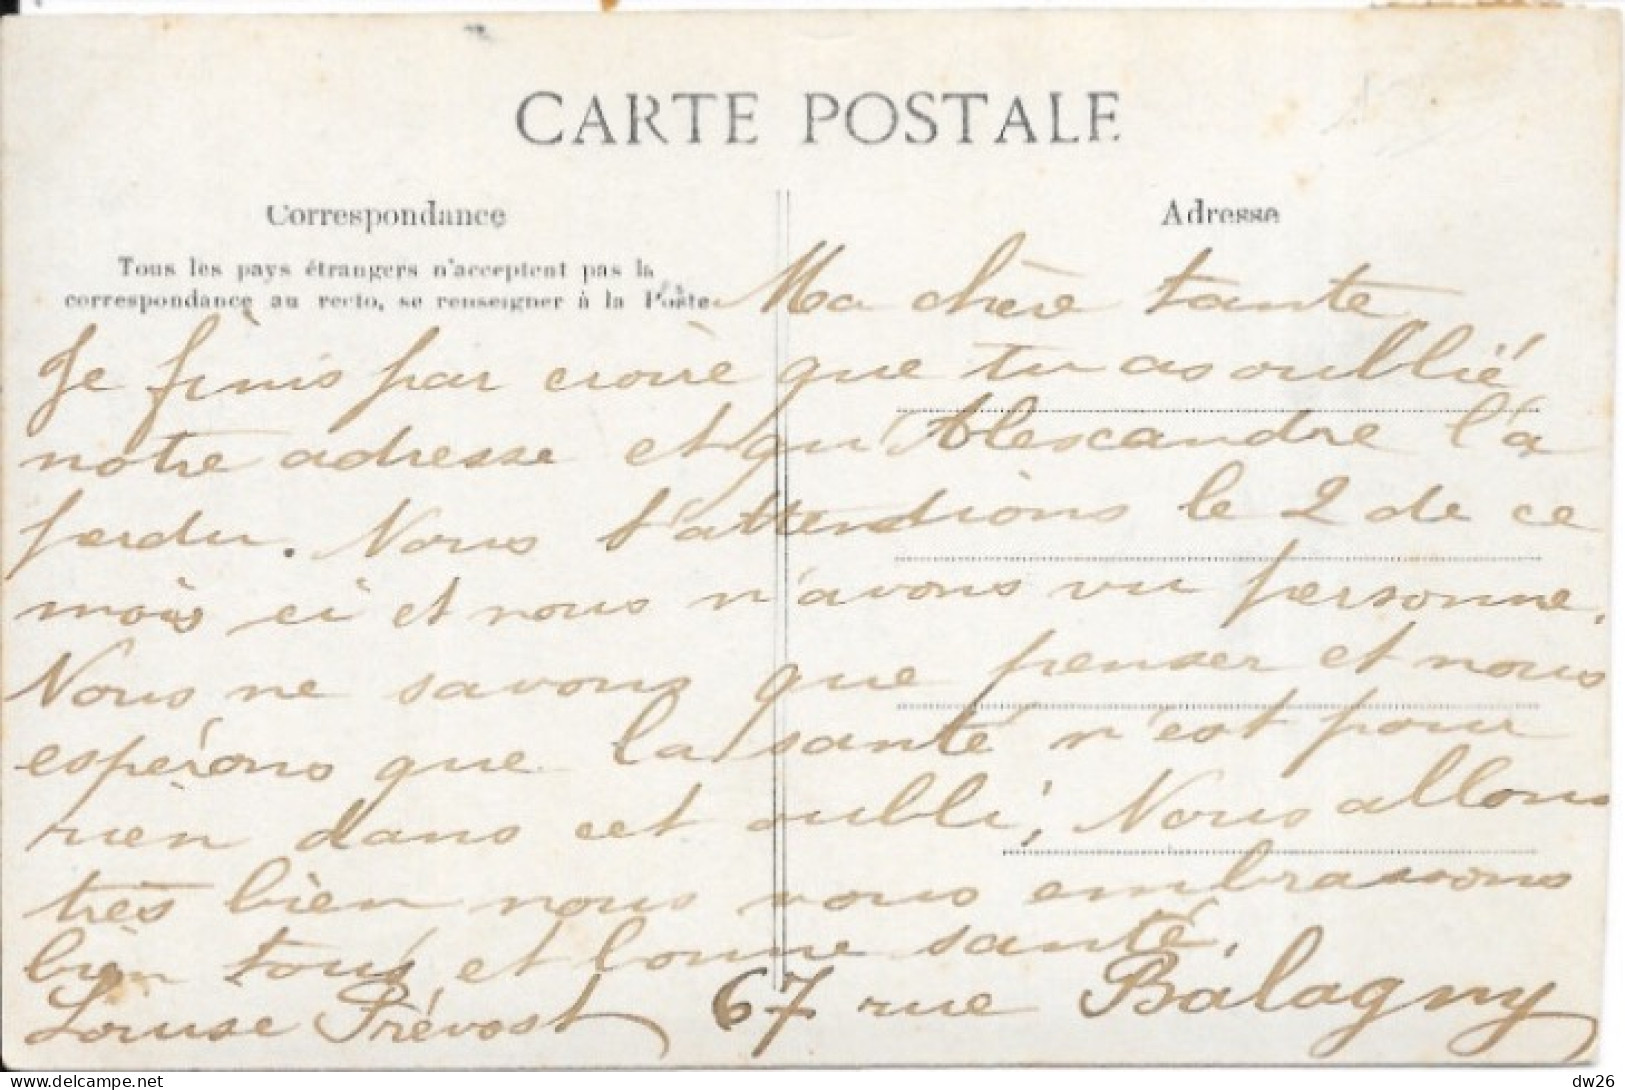 CARTE POSTALE
Correspondance
Adresse
Tous les pays étrangers n'acceptent pas la
correspondance au recto, se renseigner à la Poste
Ma chère tante
Je finis par croire que tu as oublié
notre adresse et qu'Alexandre l'a
perdu. Nous t'attendions le 2 de ce
mois ci et nous n'avons vu personne.
Nous ne savons que penser et nous
espérons que la santé n'est pour
rien dans cet oubli, Nous allons
très bien nous vous embrassons
bien tous et bonne santé.
Louise Prévost 67 rue Balagny
dw26